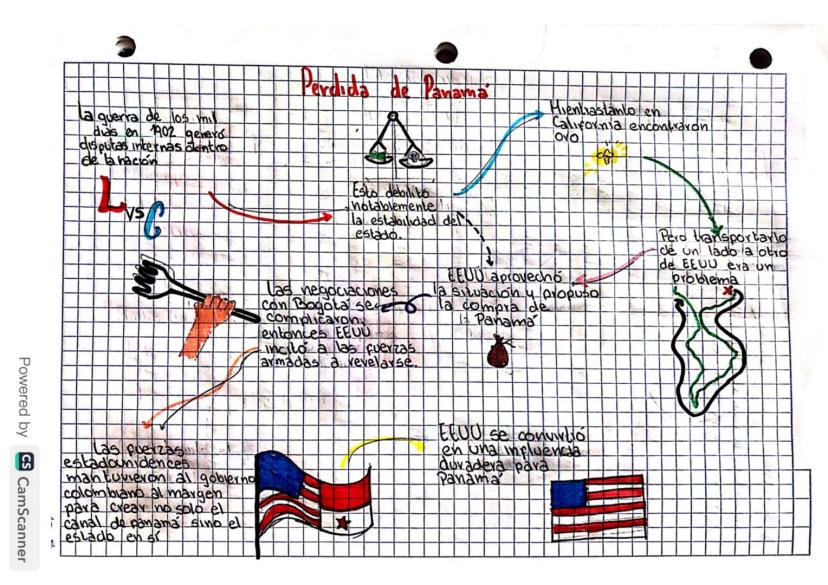 Perdida de Panamá
La guerra de los mil
dias en 1902 generó
disputas internas dentro
de la nación
L vs C
Esto debilitó
notablemente
la estabilidad del
estado.
Mientrastanto en
California encontraron
oro
Pero transportarlo
de un lado a otro
de EEUU era un
problema
EEUU aprovechó
la situación y propuso
la compra de
Panamá
Las negociaciones
con Bogotá se
complicaron,
entonces EEUU
incitó a las fuerzas
armadas a revelarse.
Las fuerzas
estadounidences
mantuvieron al gobierno
colombiano al margen
para crear no solo el
canal de panamá sino el
estado en sí
EEUU se convirtió
en una influencia
duradera para
Panamá
Powered by CS CamScanner